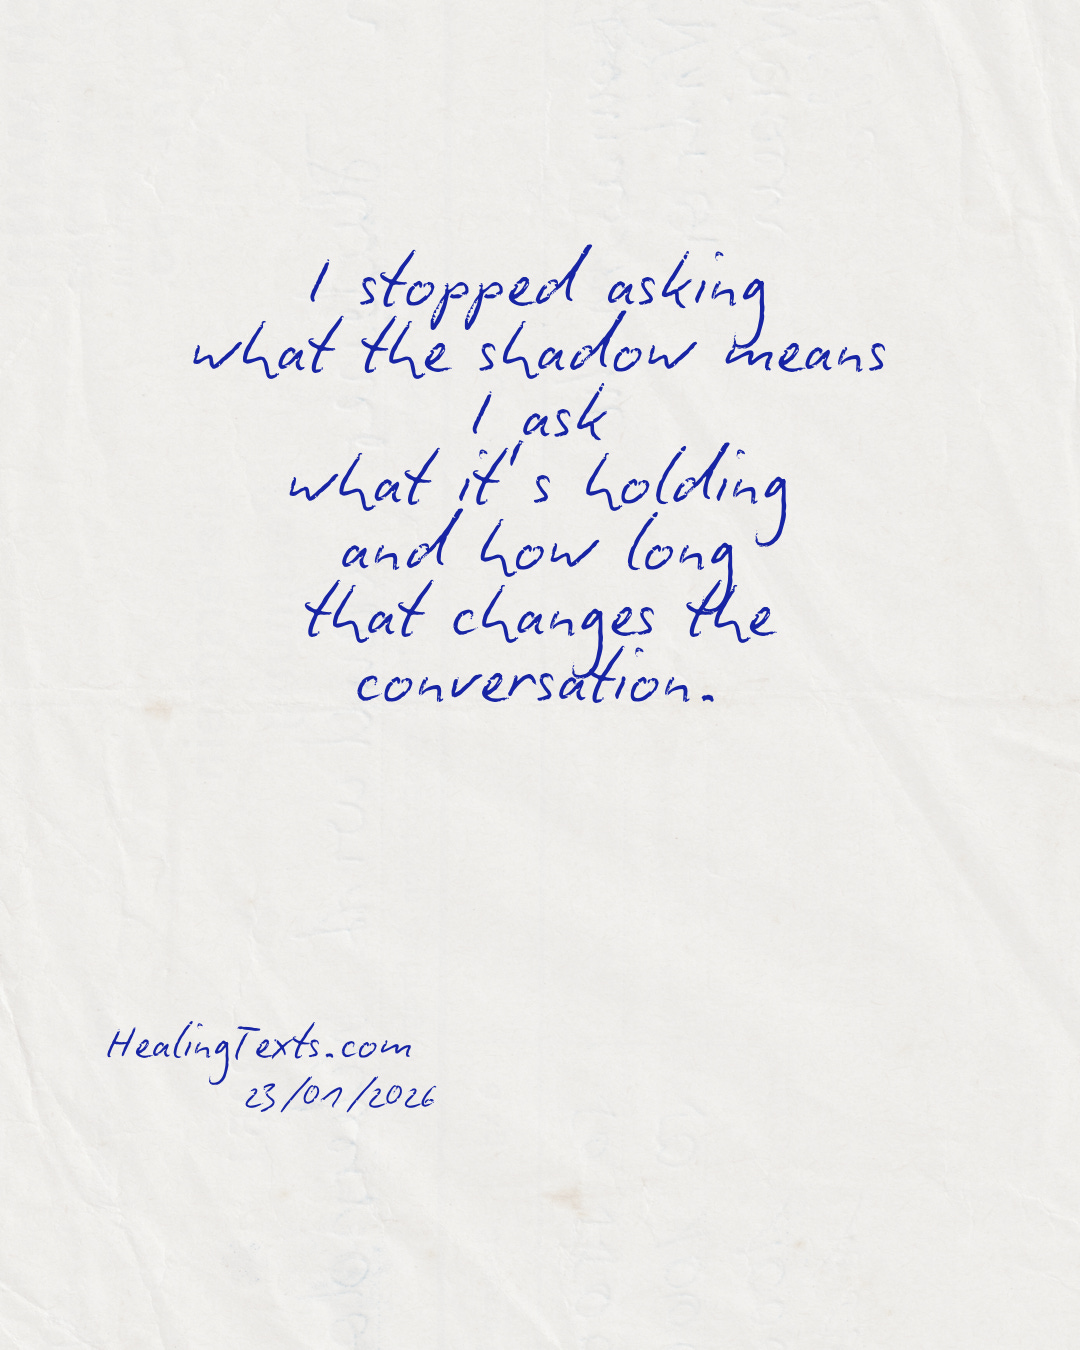 I stopped asking
what the shadow means
I ask
what it's holding
and how long
that changes the
conversation.
HealingTexts.com
23/01/2026